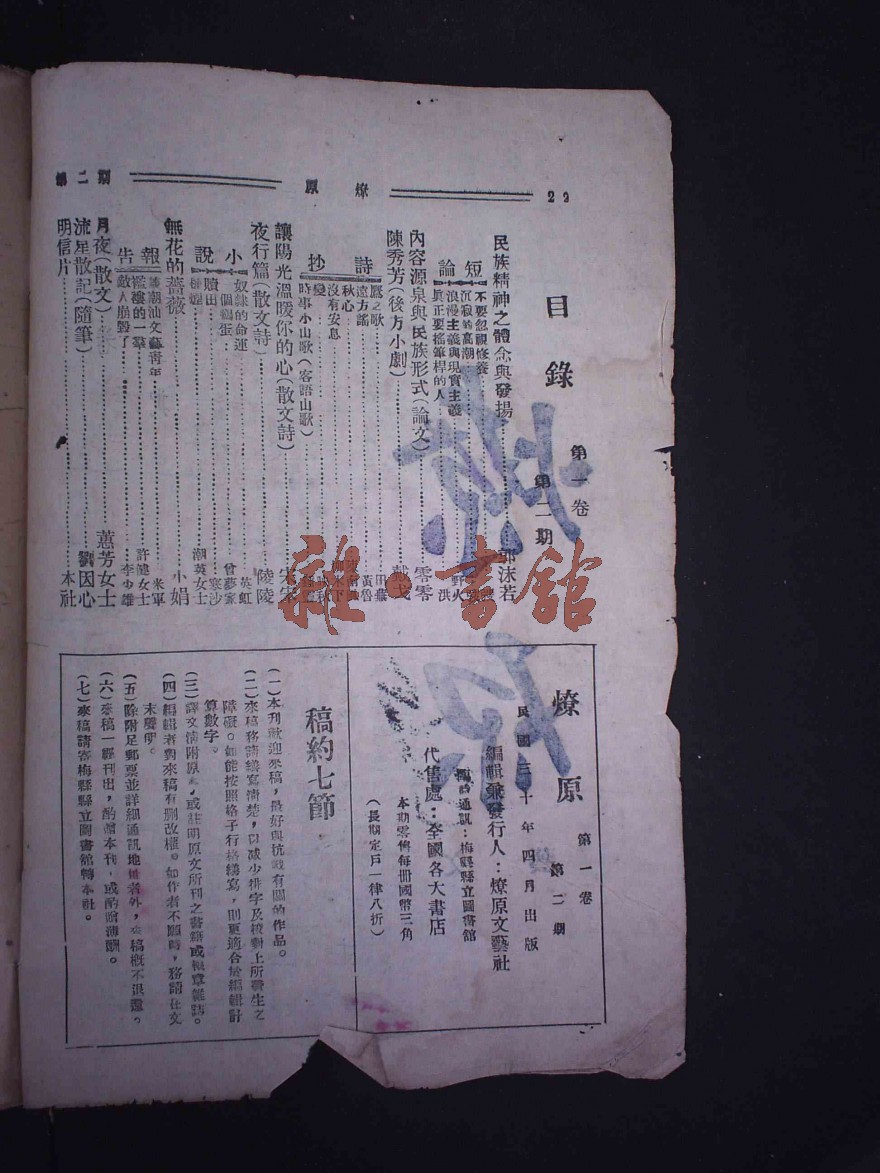 第二期
燎原
22
目錄
第一卷
第二期
民族精神之體念與發揚 郭沫若
短論
不要忽視修養
沉寂的高潮
浪漫主義與現實主義 野火
真正要搖筆桿的人 洪
內容源泉與民族形式(論文) 零零
陳秀芳(後方小劇)
詩抄
鷹之歌 田蕪
遠方謠 黃魯
秋心
沒有安息
時事小山歌(客語山歌)
讓陽光溫暖你的心(散文詩)
夜行篇(散文詩) 陵陵
小說
奴隸的命運 英虹
一個鷄蛋 曾夢家
贖田 寒沙
潮英女士
無花的薔薇 小娟
報告
談潮汕文藝青年 米軍
襤褸的一羣 許健女士
敵人崩毀了 李少雄
月夜(散文) 蕙芳女士
流星散記(隨筆) 劉因心
明信片 本社
燎原 第一卷 第二期
民國三十年四月出版
編輯兼發行人:燎原文藝社
通訊:梅縣縣立圖書館
代售處:全國各大書店
本期零售每冊國幣三角
(長期定戶一律八折)
稿約七節
(一)本刊歡迎來稿,最好與抗戰有關的作品。
(二)來稿務請繕寫清楚,以減少排字及校對上所發生之
障礙。如能按照格子行格繕寫,則更適合於編輯計
算數字。
(三)譯文請附原文,或註明原文所刊之書籍或報章雜誌。
(四)編輯者對來稿有刪改權。如作者不願時,務請在文
末聲明。
(五)除附足郵票並詳細通訊地址者外,來稿概不退還。
(六)來稿一經刊出,酌贈本刊,或酌贈薄酬。
(七)來稿請寄梅縣縣立圖書館轉本社。
燎原
雜·書館